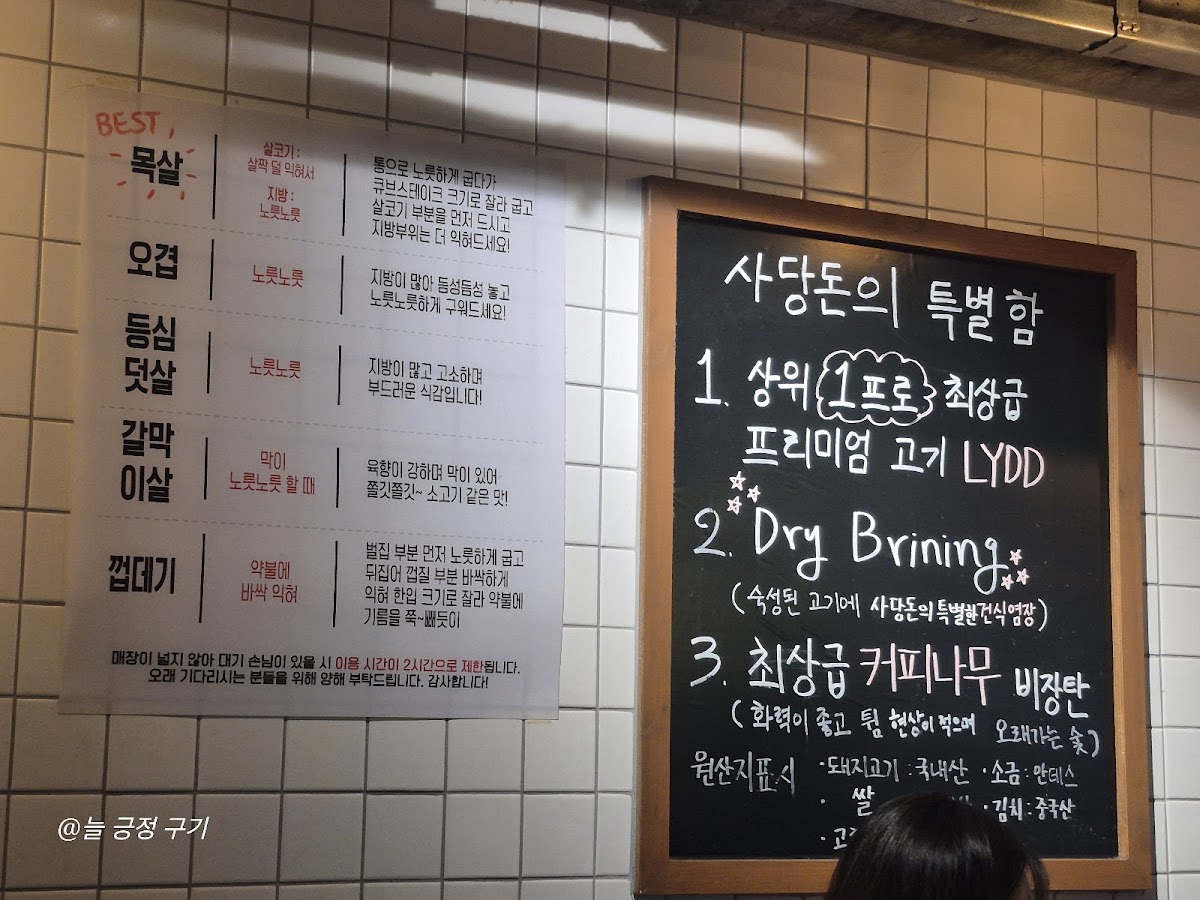 BEST,
목살
살코기 :
살짝 덜 익혀서
지방 :
노릇노릇
통으로 노릇하게 굽다가
큐브스테이크 크기로 잘라 굽고
살코기 부분을 먼저 드시고
지방부위는 더 익혀드세요!
오겹
노릇노릇
지방이 많아 듬성듬성 놓고
노릇노릇하게 구워드세요!
등심
덧살
노릇노릇
지방이 많고 고소하며
부드러운 식감입니다!
갈막
이살
막이
노릇노릇 할 때
육향이 강하며 막이 있어
쫄깃쫄깃~ 소고기 같은 맛!
껍데기
약불에
바싹 익혀
벌집 부분 먼저 노릇하게 굽고
뒤집어 껍질 부분 바싹하게
익혀 한입 크기로 잘라 약불에
기름을 쭉~빼듯이
매장이 넓지 않아 대기 손님이 있을 시 이용 시간이 2시간으로 제한됩니다.
오래 기다리시는 분들을 위해 양해 부탁드립니다. 감사합니다!
사당돈의 특별함
1. 상위 1프로 최상급
프리미엄 고기 LYDD
2. Dry Brining
(숙성된 고기에 사당돈의 특별한 건식염장)
3. 최상급 커피나무 비장탄
(화력이 좋고 튐 현상이 적으며 오래가는 숯)
원산지표시 ·돼지고기 : 국내산 ·소금 : 안데스
· 쌀 ·김치 : 중국산
@늘 긍정 구기